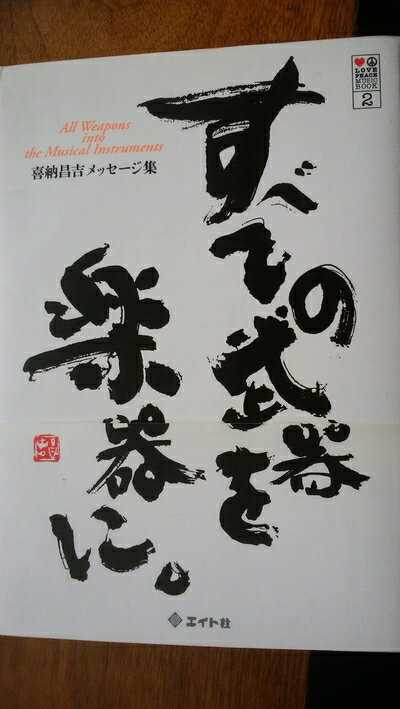 LOVE
PEACE
MUSIC
BOOK
2
All Weapons
into
the Musical Instruments
喜納昌吉メッセージ集
すべての武器を
楽器に。
エイト社